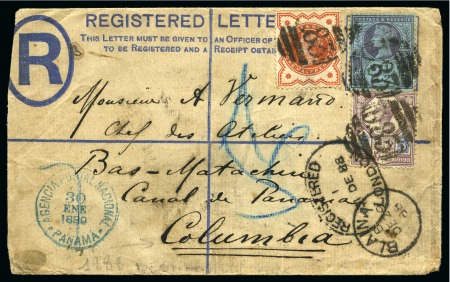 REGISTERED LETTER
THIS LETTER MUST BE GIVEN TO AN OFFICER OF
TO BE REGISTERED AND A RECEIPT OBTAIN
R
POSTAGE & REVENUE
Monsieur A Vermano
Chef des Atelier
Bas-Matachin
Canal de Panama
Columbia
AGENCIA POSTAL NACIONAL
30
ENE
PANAMA
REGISTERED
DE 88
LONDON
BLAINA